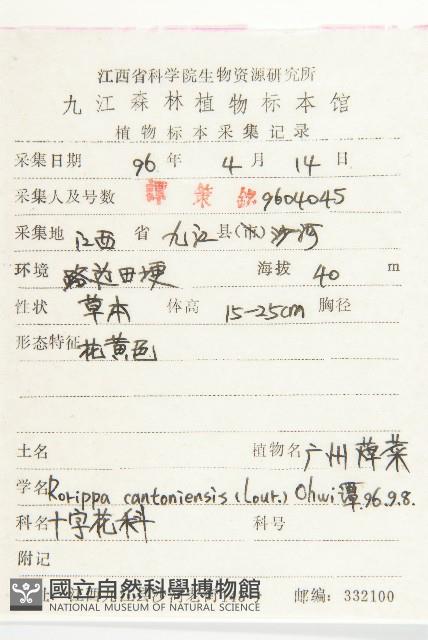 江西省科学院生物资源研究所
九江森林植物标本馆
植物标本采集记录
采集日期 96 年 4 月 14 日
采集人及号数 譚策銘 9604045
采集地 江西 省 九江 县(市) 沙河
环境 路边田埂 海拔 40 m
性状 草本 体高 15-25cm 胸径
形态特征 花黄色
土名 植物名 广州蔊菜
学名 Rorippa cantoniensis (Lour.) Ohwi 譚.96.9.8.
科名 十字花科 科号
附记
國立自然科學博物館
NATIONAL MUSEUM OF NATURAL SCIENCE
邮编: 332100